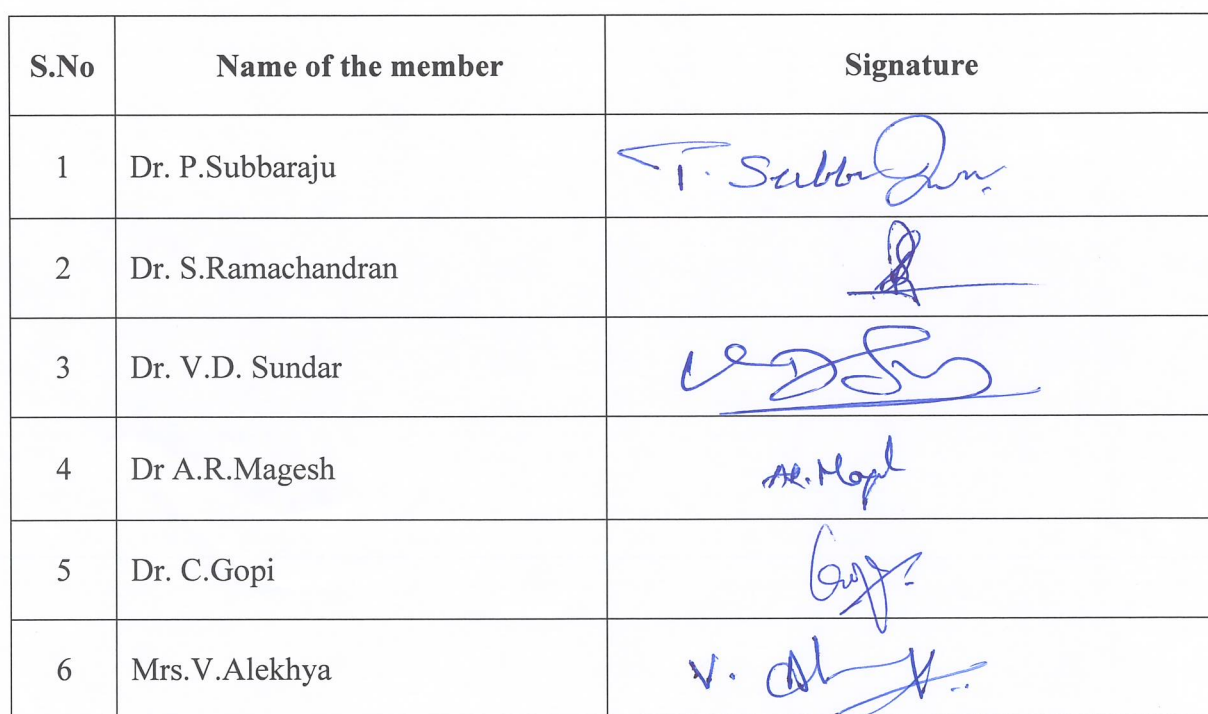 S.No Name of the member Signature
1 Dr. P.Subbaraju
2 Dr. S.Ramachandran
3 Dr. V.D. Sundar
4 Dr A.R.Magesh AR.
5 Dr. C.Gopi Gopi
6 Mrs.V.Alekhya V.